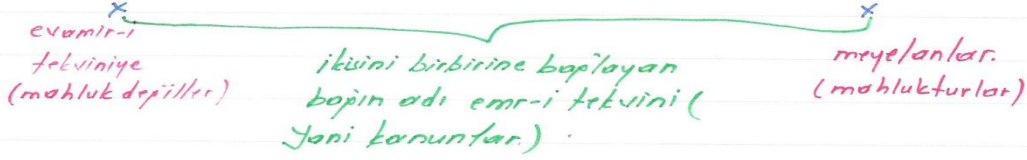 x
x
evamir-i
tekviniye
(mahluk değiller)
ikisini birbirine bağlayan
bağın adı emr-i tekvini (
yani kanunlar.)
meyelanlar.
(mahlukturlar)